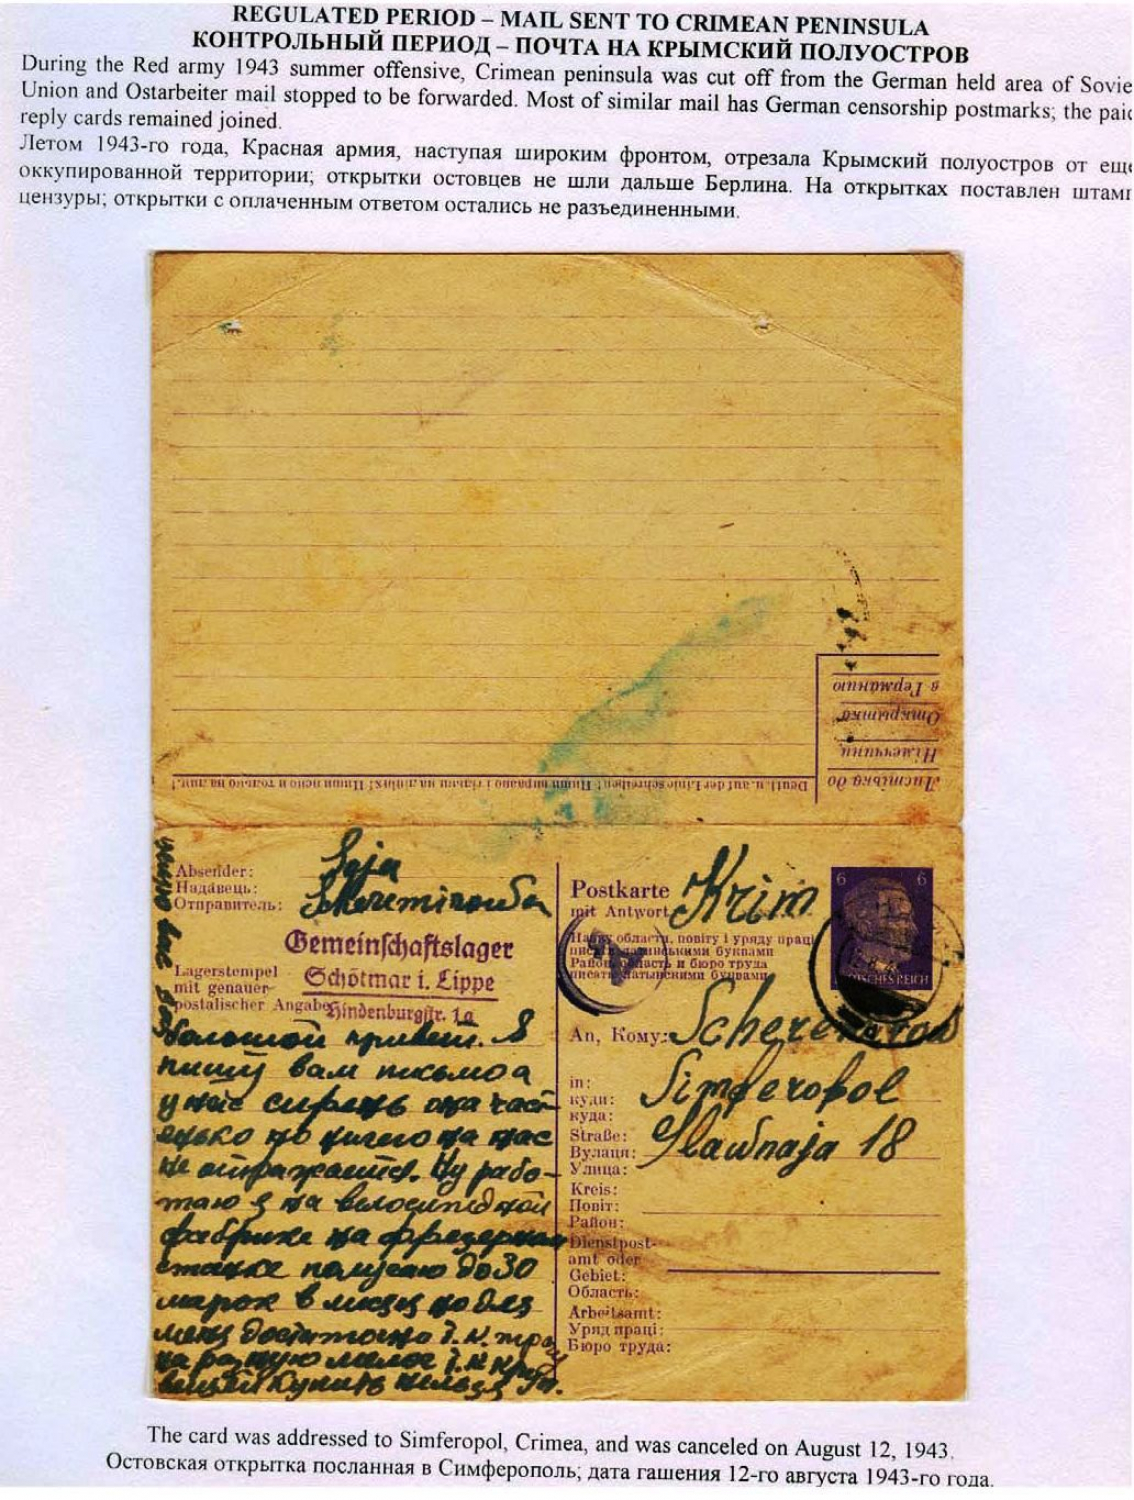 REGULATED PERIOD – MAIL SENT TO CRIMEAN PENINSULA
КОНТРОЛЬНЫЙ ПЕРИОД – ПОЧТА НА КРЫМСКИЙ ПОЛУОСТРОВ
During the Red army 1943 summer offensive, Crimean peninsula was cut off from the German held area of Sovie
Union and Ostarbeiter mail stopped to be forwarded. Most of similar mail has German censorship postmarks; the paid
reply cards remained joined.
Летом 1943-го года, Красная армия, наступая широким фронтом, отрезала Крымский полуостров от еще
оккупированной территории; открытки остовцев не шли дальше Берлина. На открытках поставлен штамп
цензуры; открытки с оплаченным ответом остались не разъединенными.
в Германию
Открытка
Німеччини
Листівка до
Deutl. u. auf der Linie schreiben!
Absender:
Надавець:
Отправитель:
Gemeinschaftslager
Schötmar i. Lippe
Hindenburgstr. 1a
Lagerstempel
mit genauer
postalischer Angabe
большой привет. Я
пишу вам письмо а
у нас
но ничего на нас
не отражается. Ну рабо-
таю я на велосипедной
фабрике на фрезерном
станке получаю до 30
марок в месяц но для
меня достаточно т. к.
купить нельзя
Postkarte
mit Antwort
Krim
Назву області, повіту і уряду праці
писати латинськими буквами
Район, область и бюро труда
писати латынскими буквами
6 6
DEUTSCHES REICH
An, Кому:
in:
куди:
куда:
Simferopol
Straße:
Вулиця:
Улица:
Slawnaja 18
Kreis:
Повіт:
Район:
Dienstpost-
amt oder
Gebiet:
Область:
Arbeitsamt:
Уряд праці:
Бюро труда:
The card was addressed to Simferopol, Crimea, and was canceled on August 12, 1943.
Остовская открытка посланная в Симферополь; дата гашения 12-го августа 1943-го года.